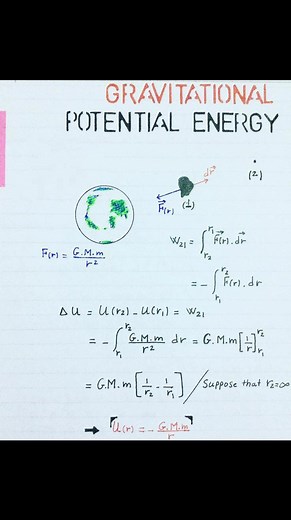 GRAVITATIONAL
POTENTIAL ENERGY
dr⃗
(2)
F⃗(r) (1)
F(r) = G.M.m / r²
W₂₁ = ∫_{r₂}^{r₁} F⃗(r) . dr⃗
= - ∫_{r₁}^{r₂} F(r) . dr
ΔU = U(r₂) - U(r₁) = W₂₁
= - ∫_{r₁}^{r₂} G.M.m / r² dr = G.M.m [1/r]_{r₁}^{r₂}
= G.M.m [1/r₂ - 1/r₁] / Suppose that r₂=∞
→ U(r) = - G.M.m / r